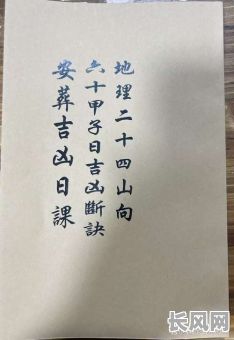 地理二十四山向
六十甲子日吉凶斷訣
安葬吉凶日課
长风网